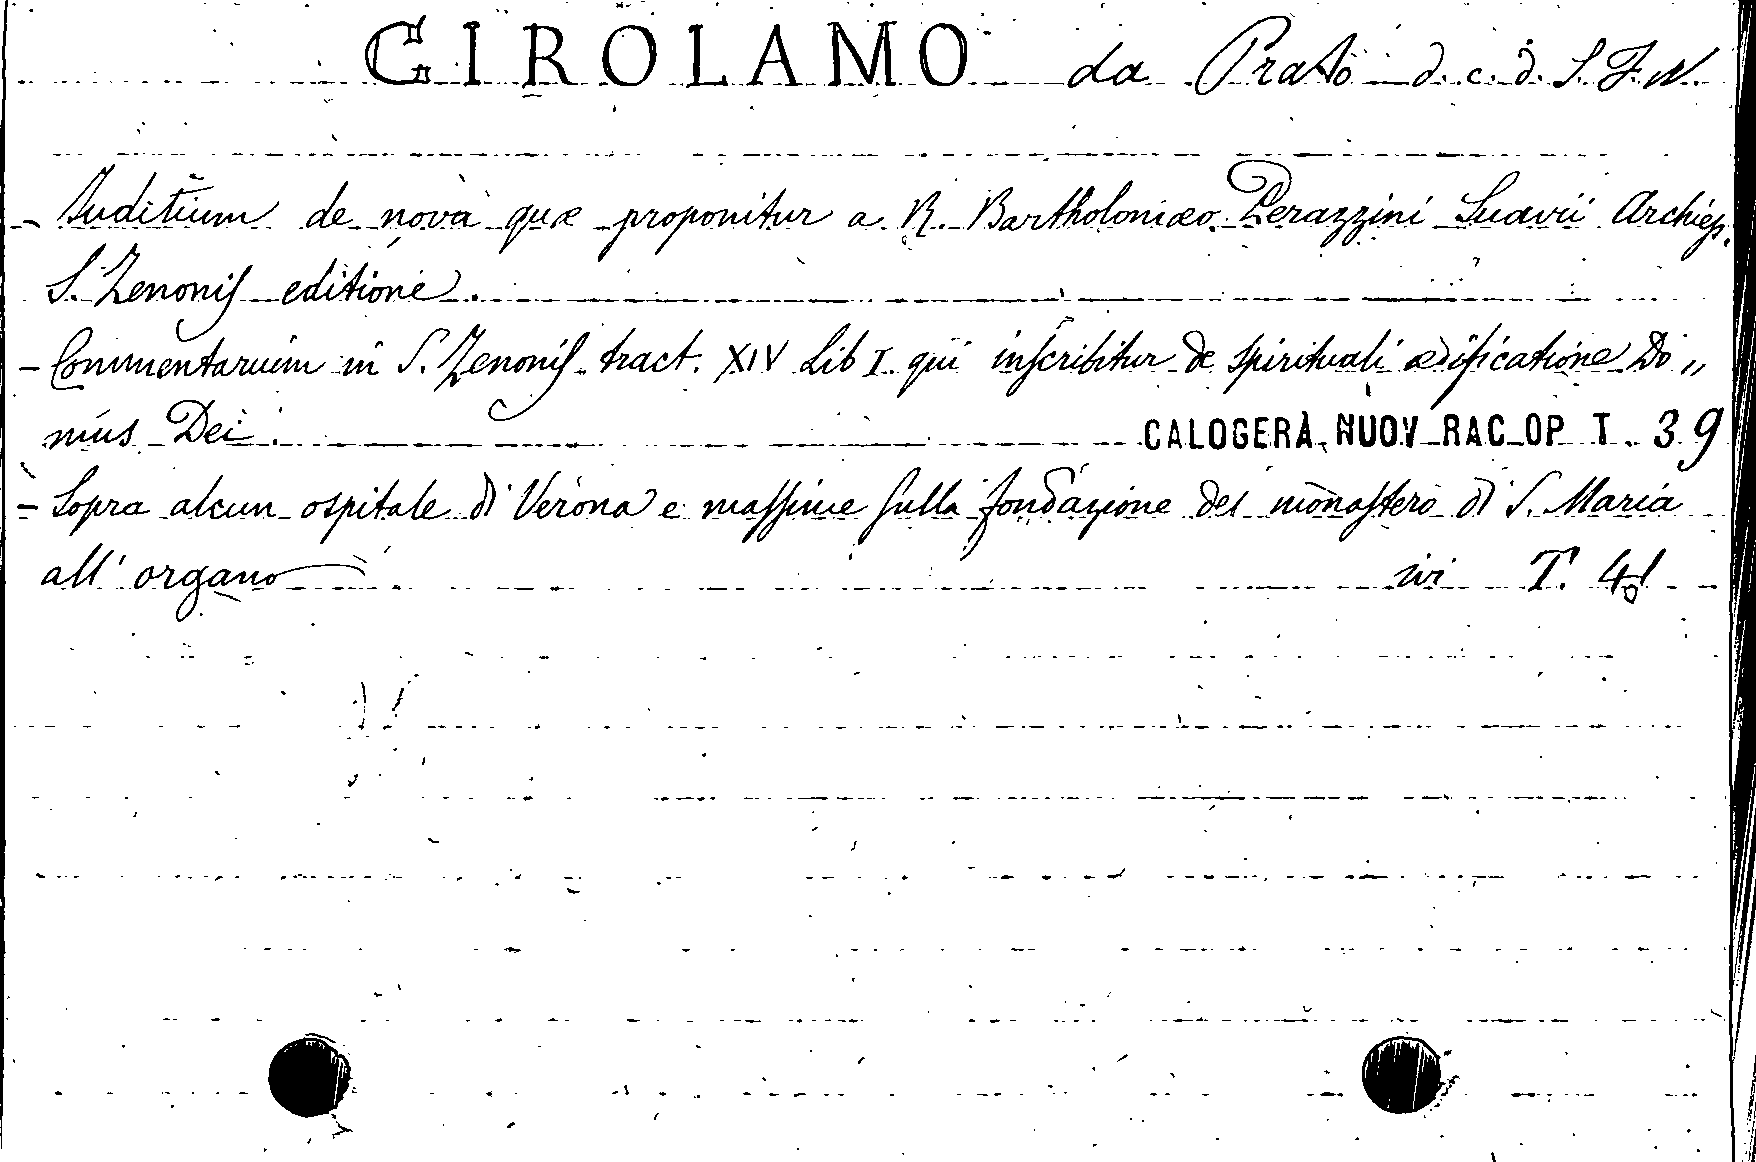 GIROLAMO da Prato d. c. d. S. F. N.
- Juditium de nova quæ proponitur a R. Bartholomæo Perazzini Suavii Archiep.
S. Zenonis editione.
- Commentarium in S. Zenonis tract. XIV Lib I qui inscribitur de spirituali ædificatione Do〃
mus Dei. CALOGERÀ NUOV RAC OP T. 39
- Sopra alcun ospitale di Verona e massime sulla fondazione del monastero di S. Maria
all' organo ivi T.